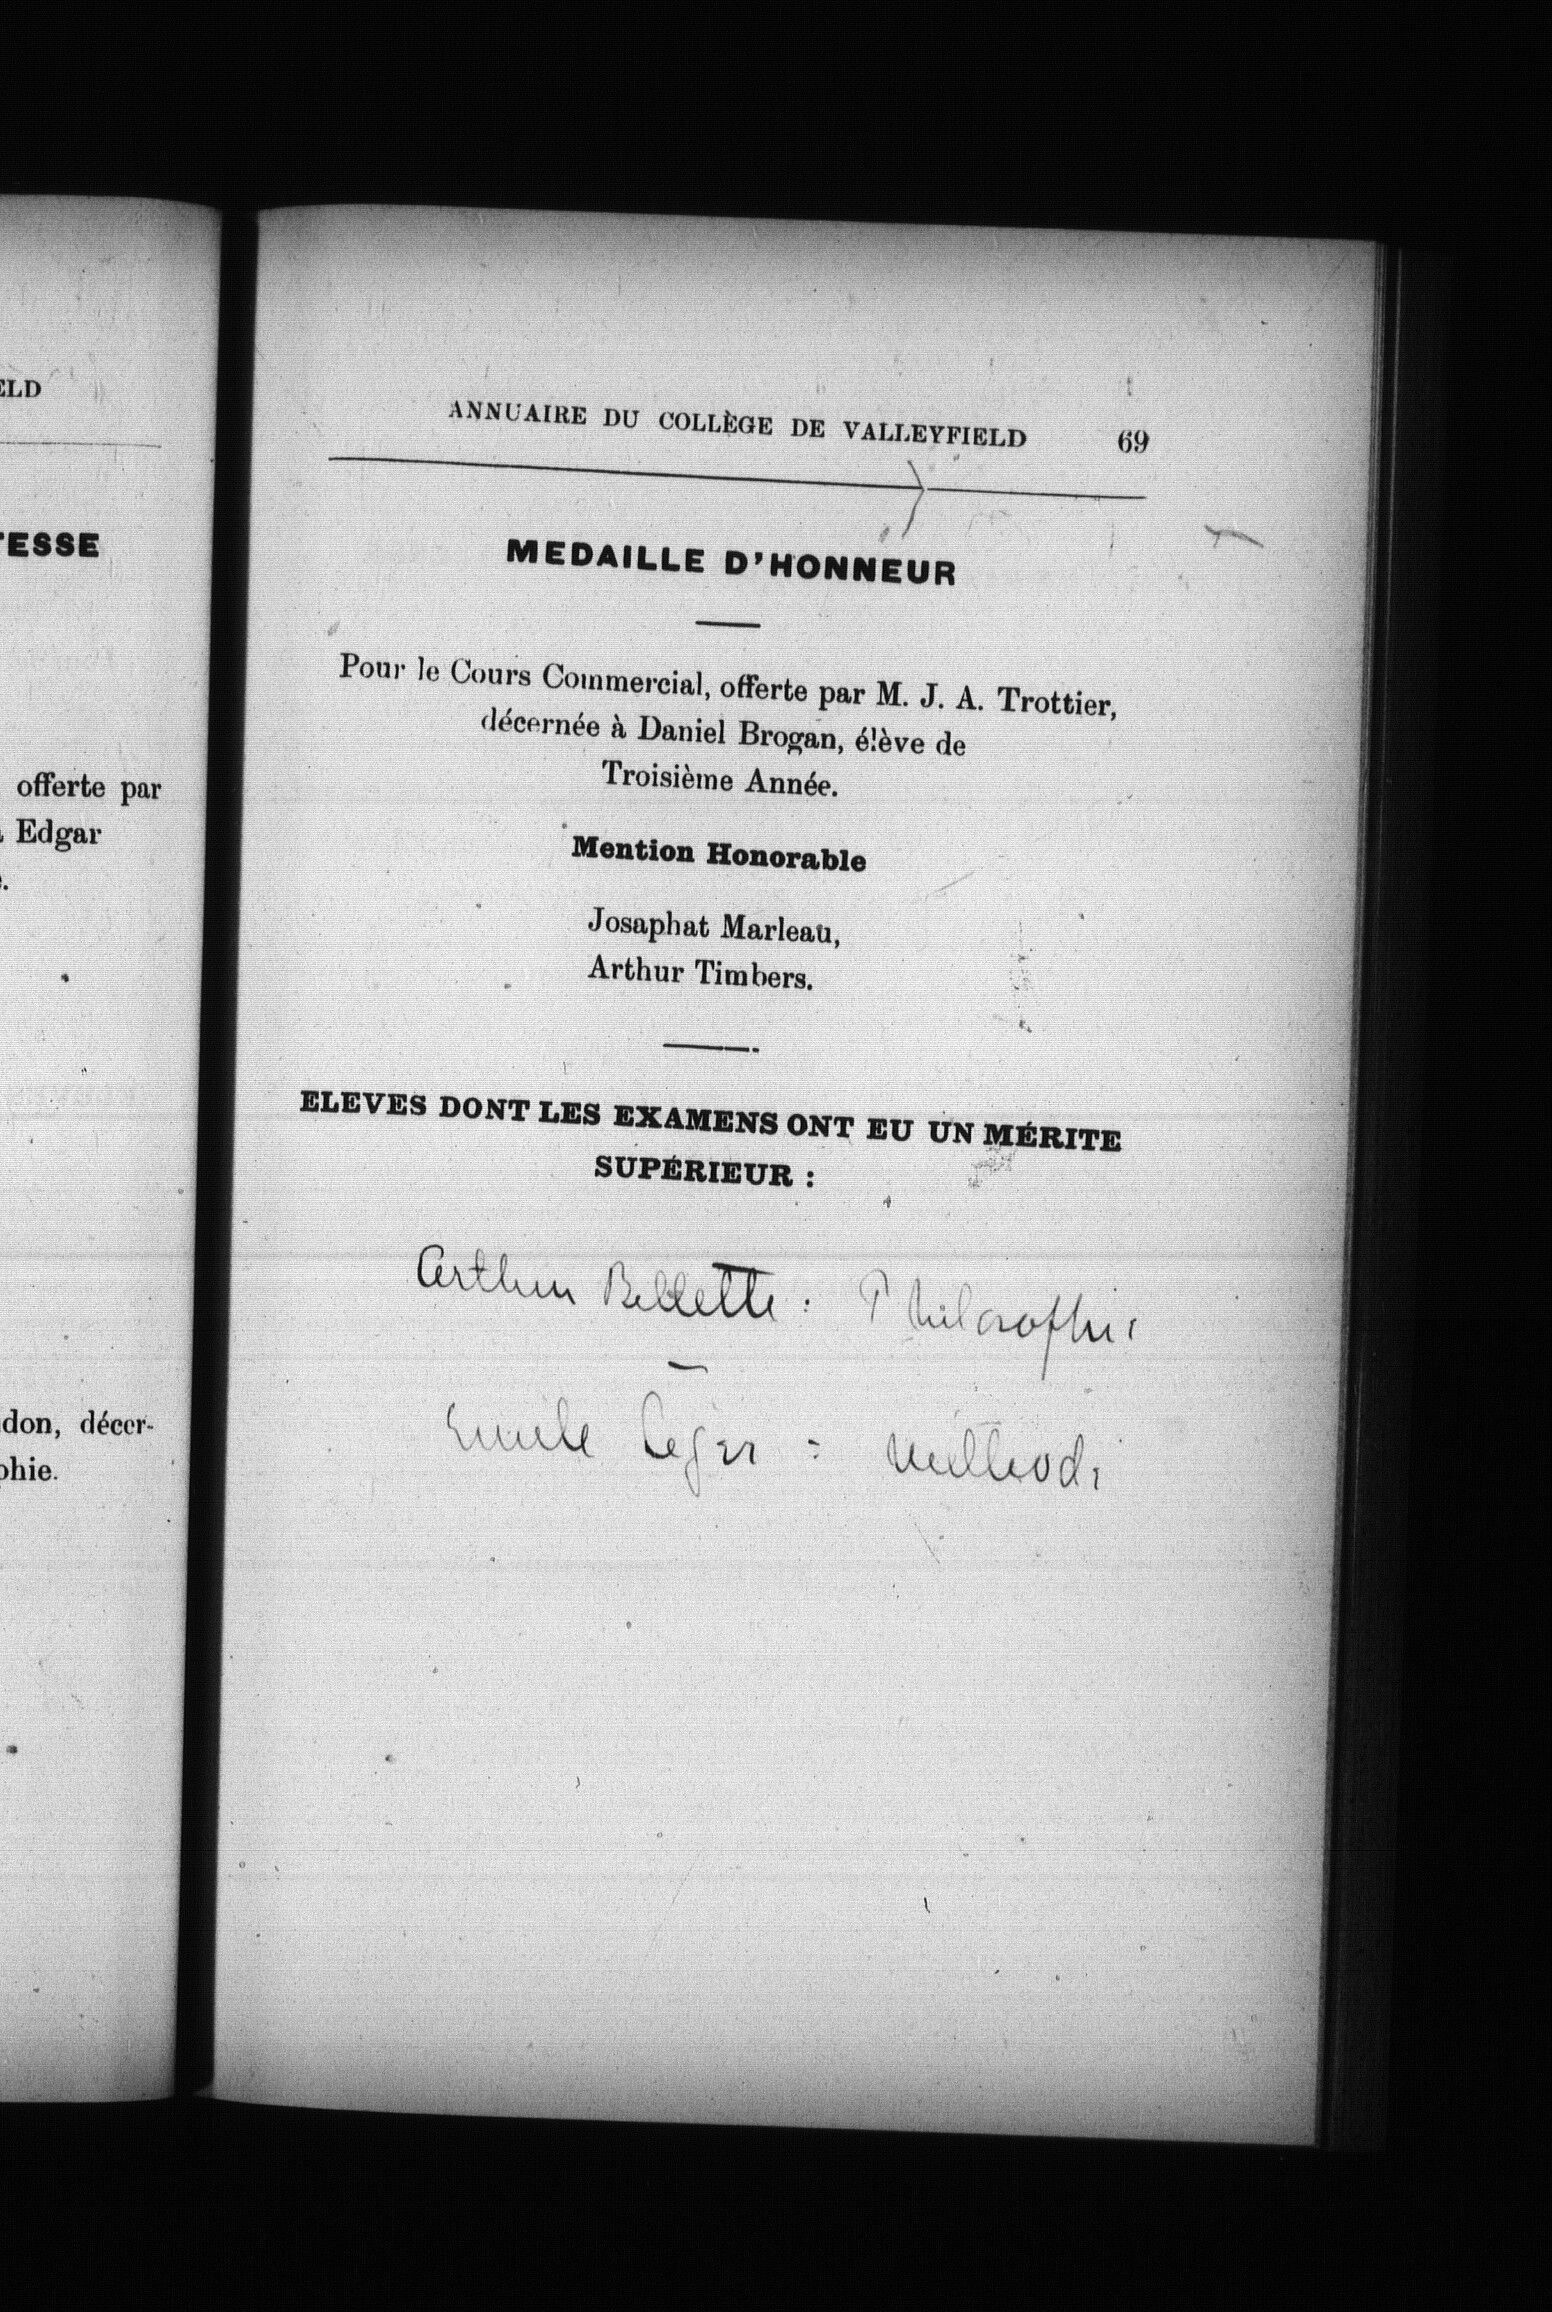 ELD
TESSE
offerte par
Edgar
don, décer-
phie.
ANNUAIRE DU COLLÈGE DE VALLEYFIELD 69
MEDAILLE D'HONNEUR
Pour le Cours Commercial, offerte par M. J. A. Trottier,
décernée à Daniel Brogan, élève de
Troisième Année.
Mention Honorable
Josaphat Marleau,
Arthur Timbers.
ELEVES DONT LES EXAMENS ONT EU UN MÉRITE
SUPÉRIEUR :
Arthur Bellette : Philosophie
Emile Leger : Methode